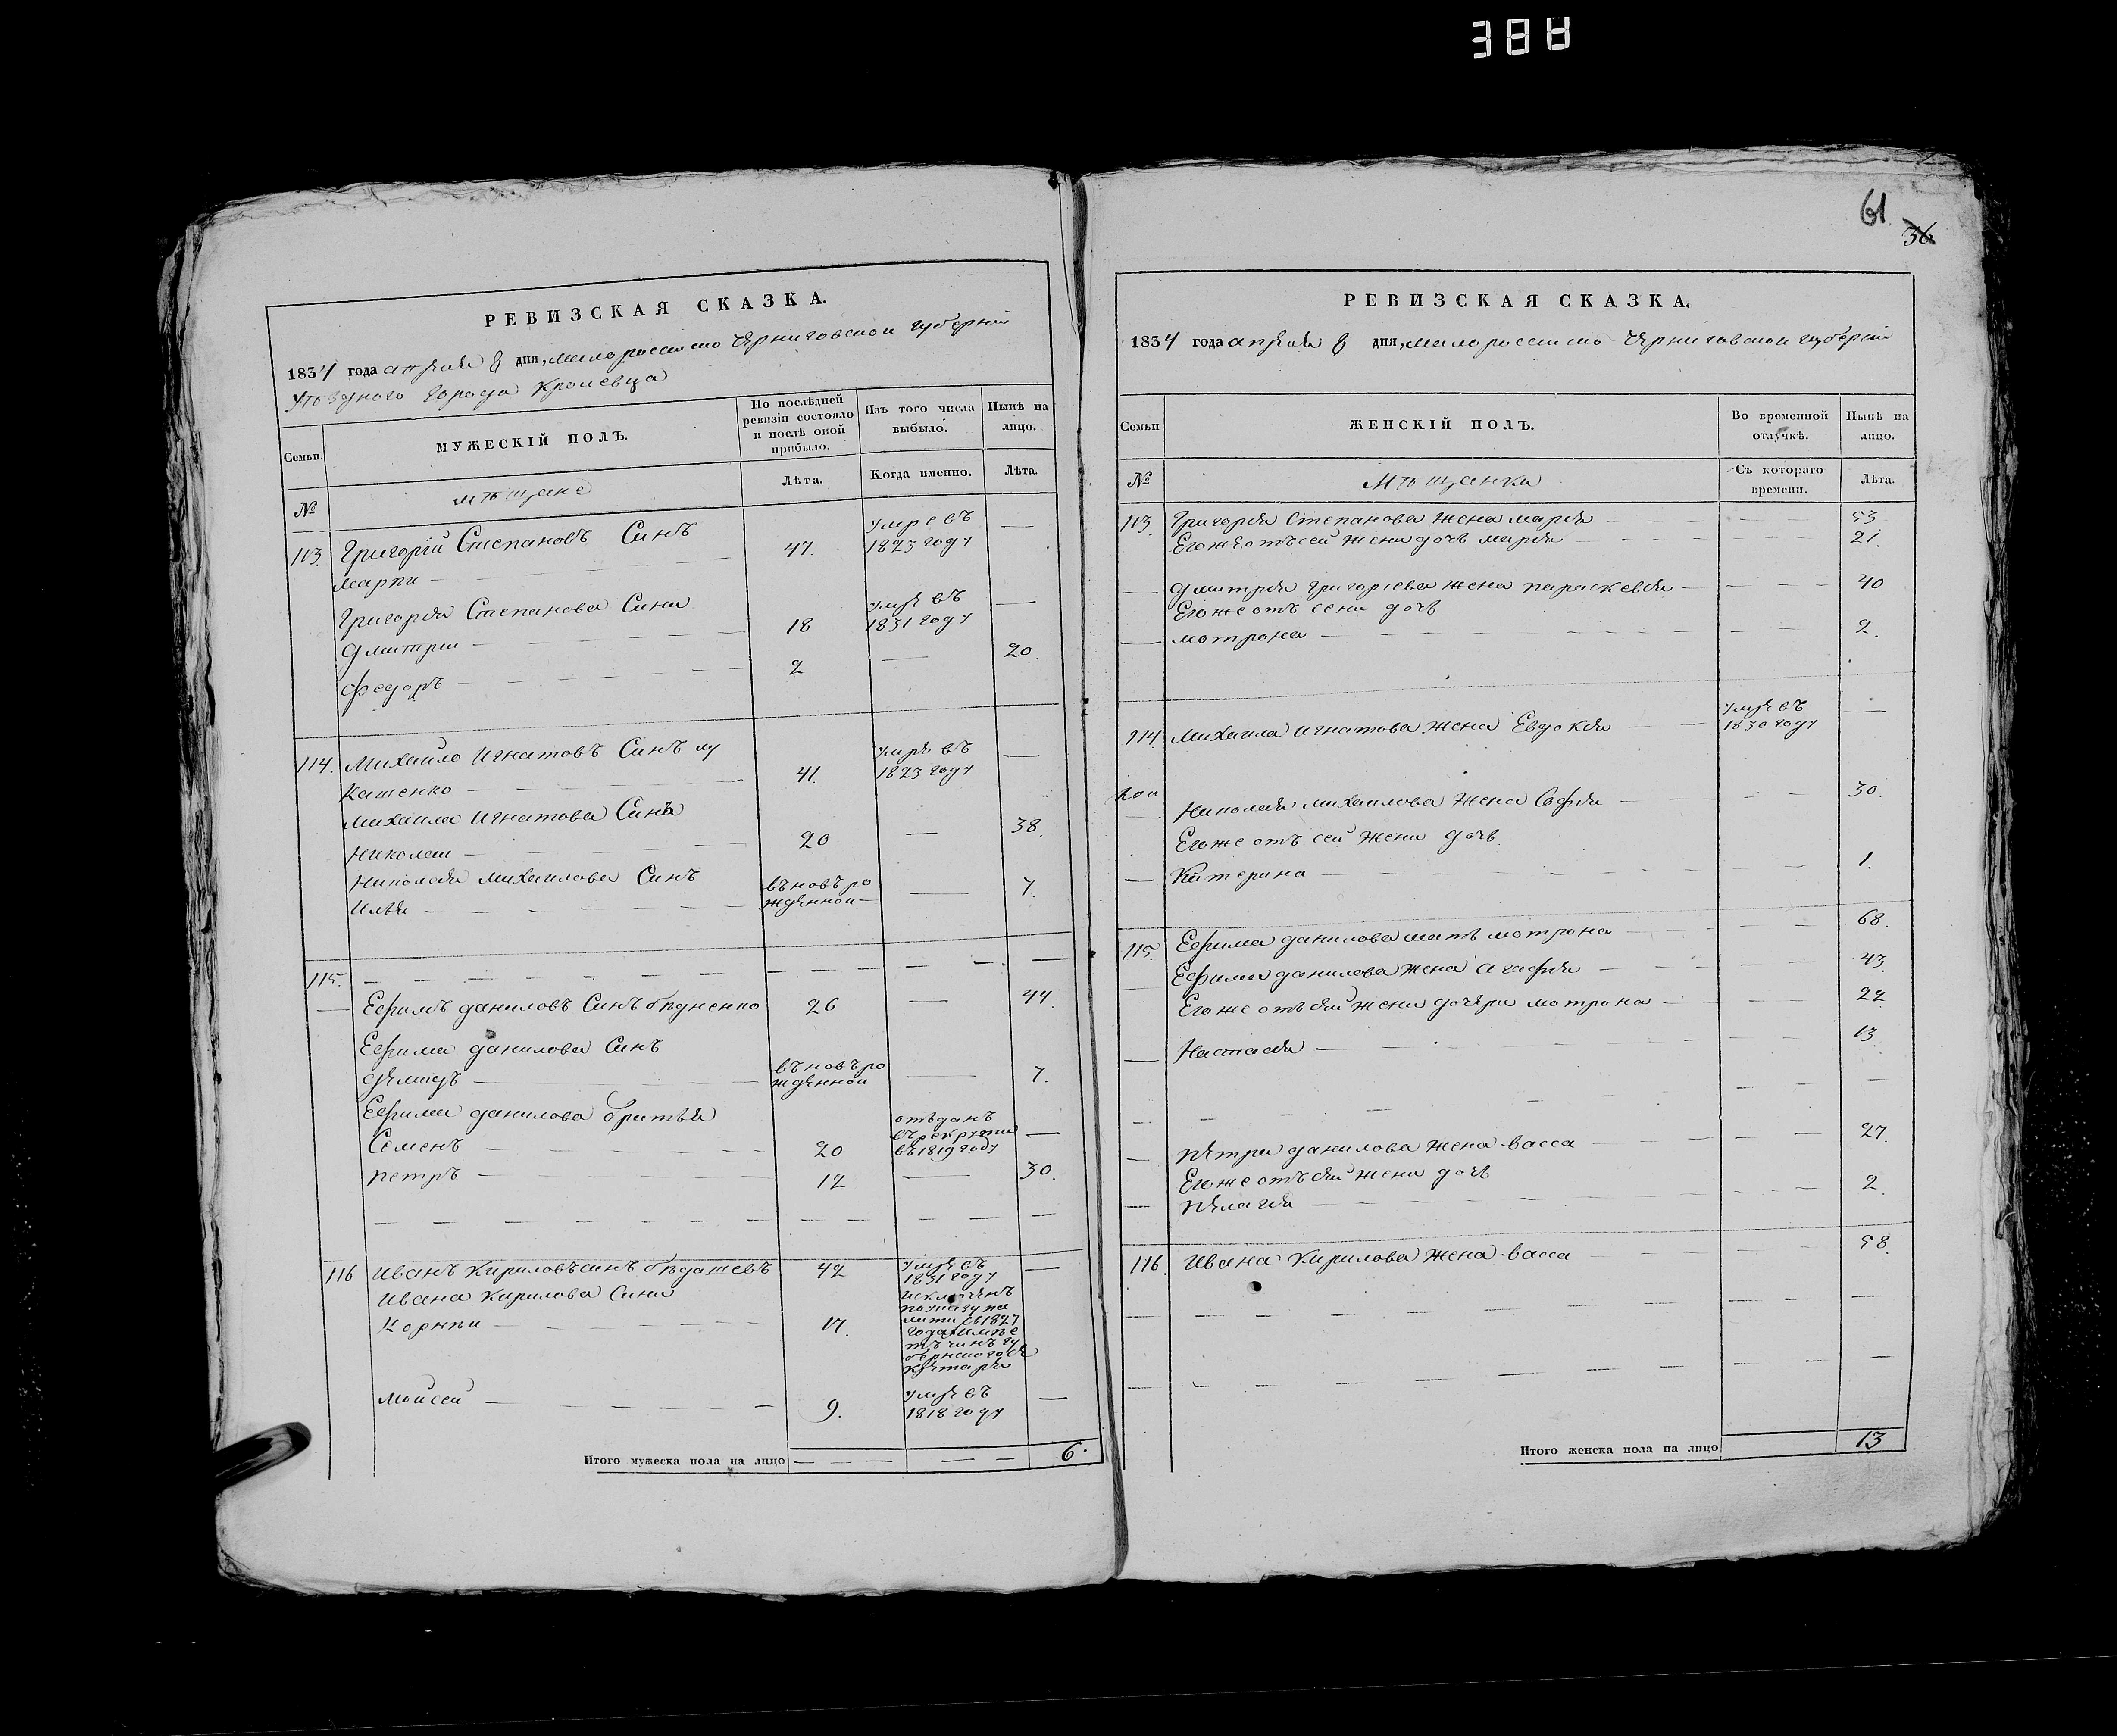 388
61
36
РЕВИЗСКАЯ СКАЗКА.
1834 года апреля 8 дня, малороссиско Черниговской губернии
Уѣздного города Кролевца
Семьи.
МУЖЕСКІЙ ПОЛЪ.
По послѣдней ревизіи состояло и послѣ оной прибыло.
Изъ того числа выбыло.
Нынѣ на лицо.
№
мѣщане
Лѣта.
Когда именно.
Лѣта.
113. Григорій Степановъ Синъ 47. умре въ 1823 году —
Григорія Степанова Сини
Дмитрии 18 умре въ 1831 году —
Федоръ 2 — 20.
114. Михаило Игнатовъ Синъ лу
кашенко 41. умре въ 1823 году —
Михаила Игнатова Синъ
Николаи 20 — 38.
Николая Михаилова Синъ
Илья въновъ рожденнои — 7.
115.
— Ефримъ даниловъ Синъ бѣдненко 26 — 44.
Ефрима данилова Синъ
въновъ рожденнои — 7.
Ефрима данилова братья
Семенъ 20 отъданъ въ рекрути въ 1819 году —
петръ 12 — 30.
116 Иванъ Кириловъ синъ 42 умре въ 1831 году —
Ивана Кирилова Сини
Корнѣи 17.
Моисеи 9. умре въ 1818 году —
Итого мужеска пола на лицо 6.
РЕВИЗСКАЯ СКАЗКА.
1834 года апреля 8 дня, малороссиско Черниговской губерніи
Семьи
ЖЕНСКІЙ ПОЛЪ.
Во временной отлучкѣ.
Нынѣ на лицо.
№
Мѣщанки
Съ котораго времени.
Лѣта.
113. Григория Степанова жена мария 53
Егоже отъ сеи жени дочь мария 21.
— Дмитрия Григориева жена параскевия 40
Егоже отъ сени дочь
— мотрона 2.
114 Михаила Игнатова жена Евдокия умре въ 1830 году —
— Николая Михаилова жена София 30.
Егоже отъ сеи жени дочь
— Катерина 1.
115. Ефрима данилова мать мотрона 68.
— Ефрима данилова жена агафия 43.
Егоже отъ сеи жени дочери мотрона 22
— Настасия 13
— петра данилова жена васса 27.
Егоже отъ сеи жени дочь
— пелагия 2.
116. Ивана Кирилова жена васса 58.
Итого женска пола на лицо 13